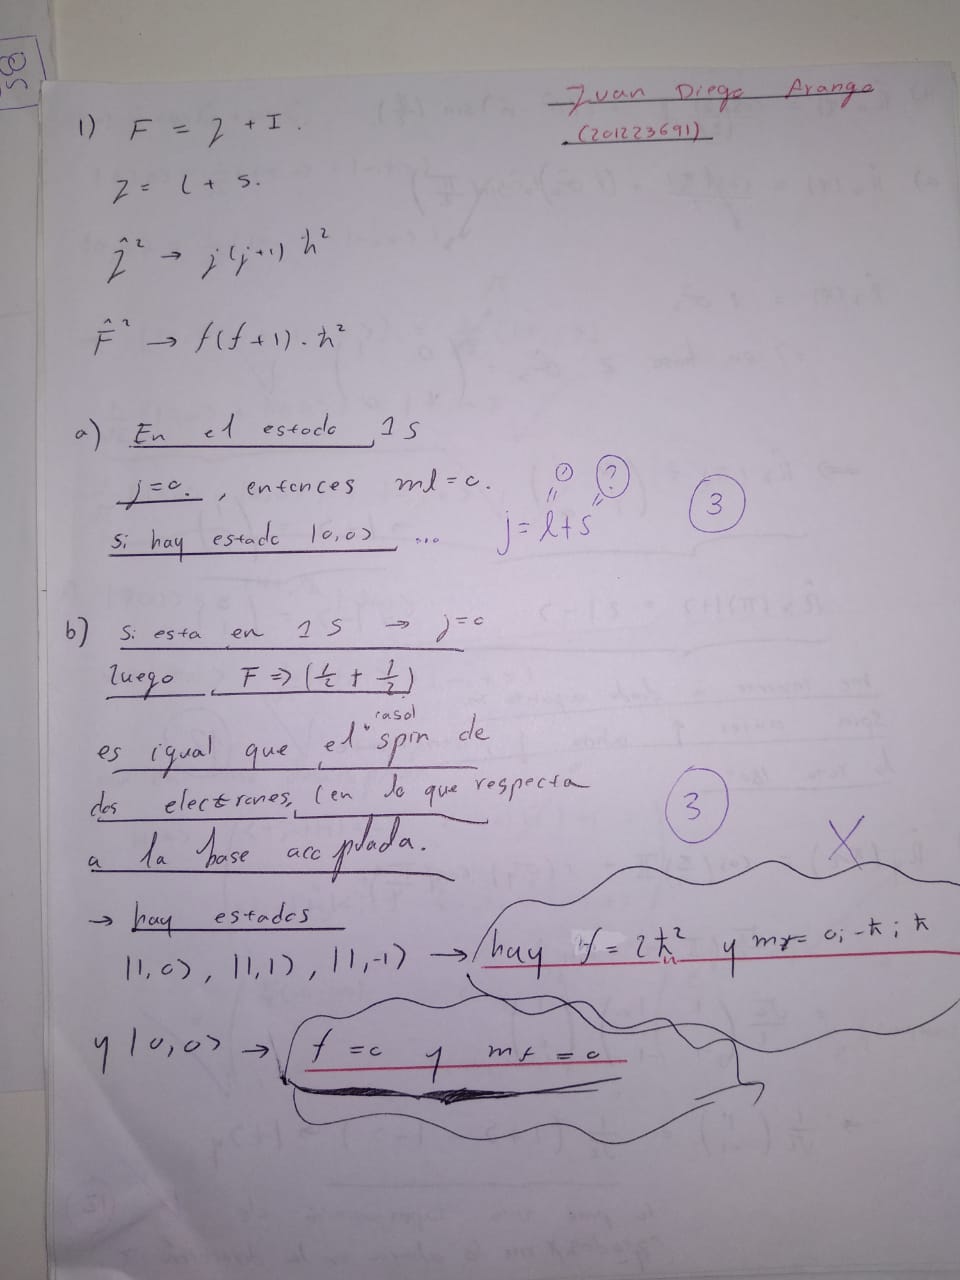 Juan Diego Arango
(201223691)
1) F = J + I.
J = l + s.
Ĵ² → j(j+1) ħ²
F̂² → f(f+1) · ħ²
a) En el estado 1S
j=0. , entonces ml=0.
si hay estado |0,0> ...
0 ?
j = l+s
3
b) Si esta en 1S → j=0
luego F => (1/2 + 1/2)
es igual que el "caso" spin de
dos electrones, (en lo que respecta
a la base accplada.
3
X
→ hay estados
|1,0>, |1,1>, |1,-1> → hay f = 2ħ² y mf= 0; -ħ; ħ
y |0,0> → f =0 y mf =0